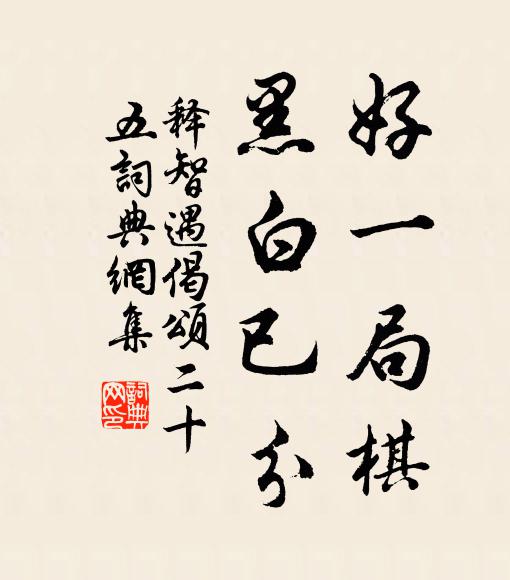 好一局棋
黑白已分
释智遇偈頌二十
五詞典網集
詞典網印